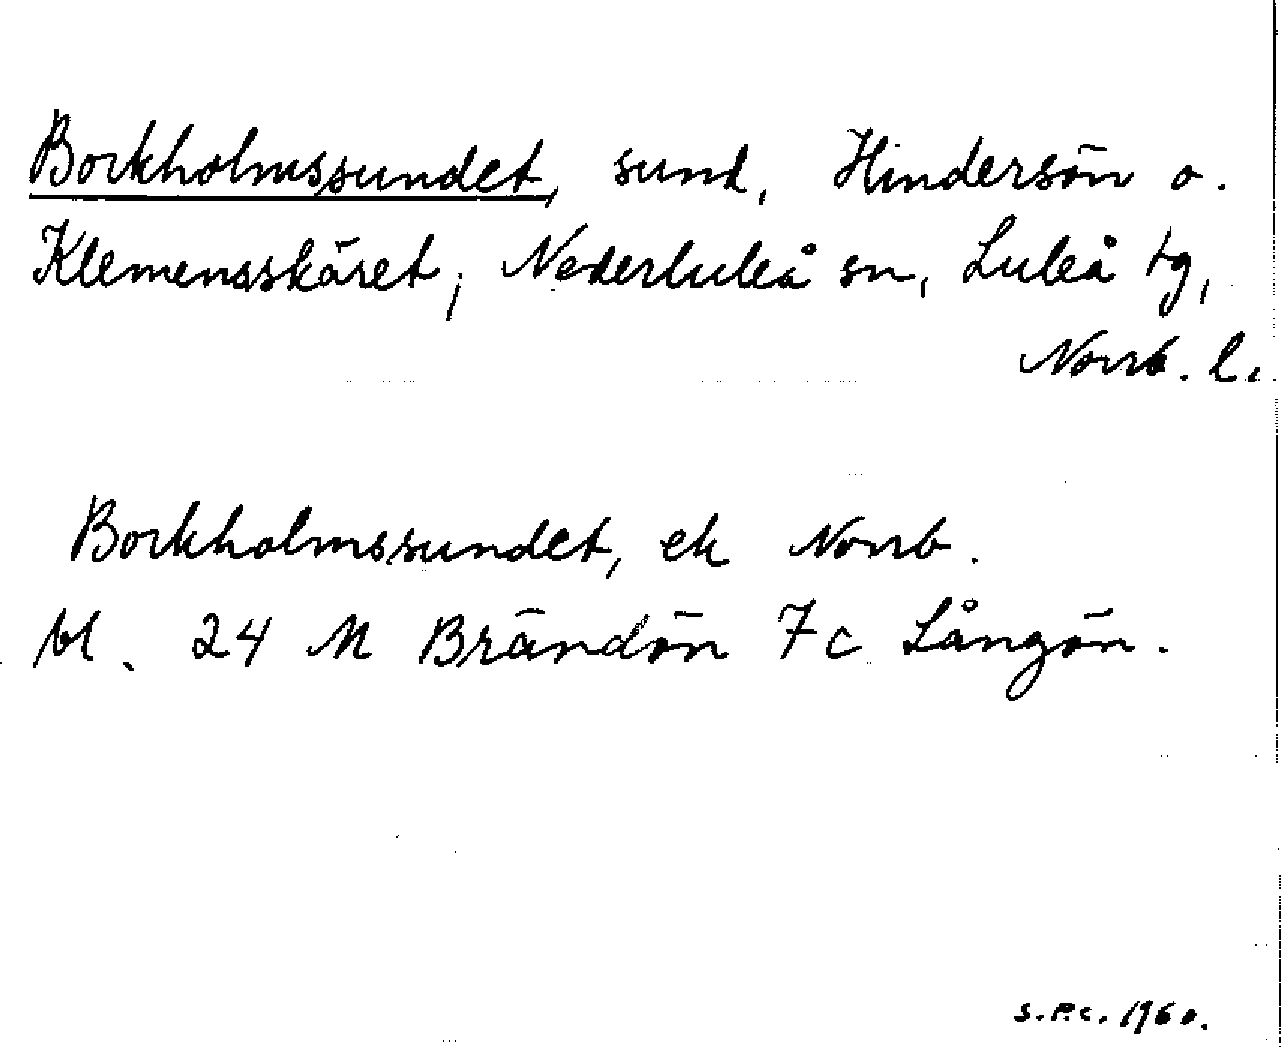 Borkholmssundet, sund, Hindersön o.
Klemensskäret, Nederluleå sn, Luleå tg,
Norrb. l.
Borkholmssundet, ek Norrb.
bl. 24 M Brändön 7 c Långön.
S.P.C. 1960.